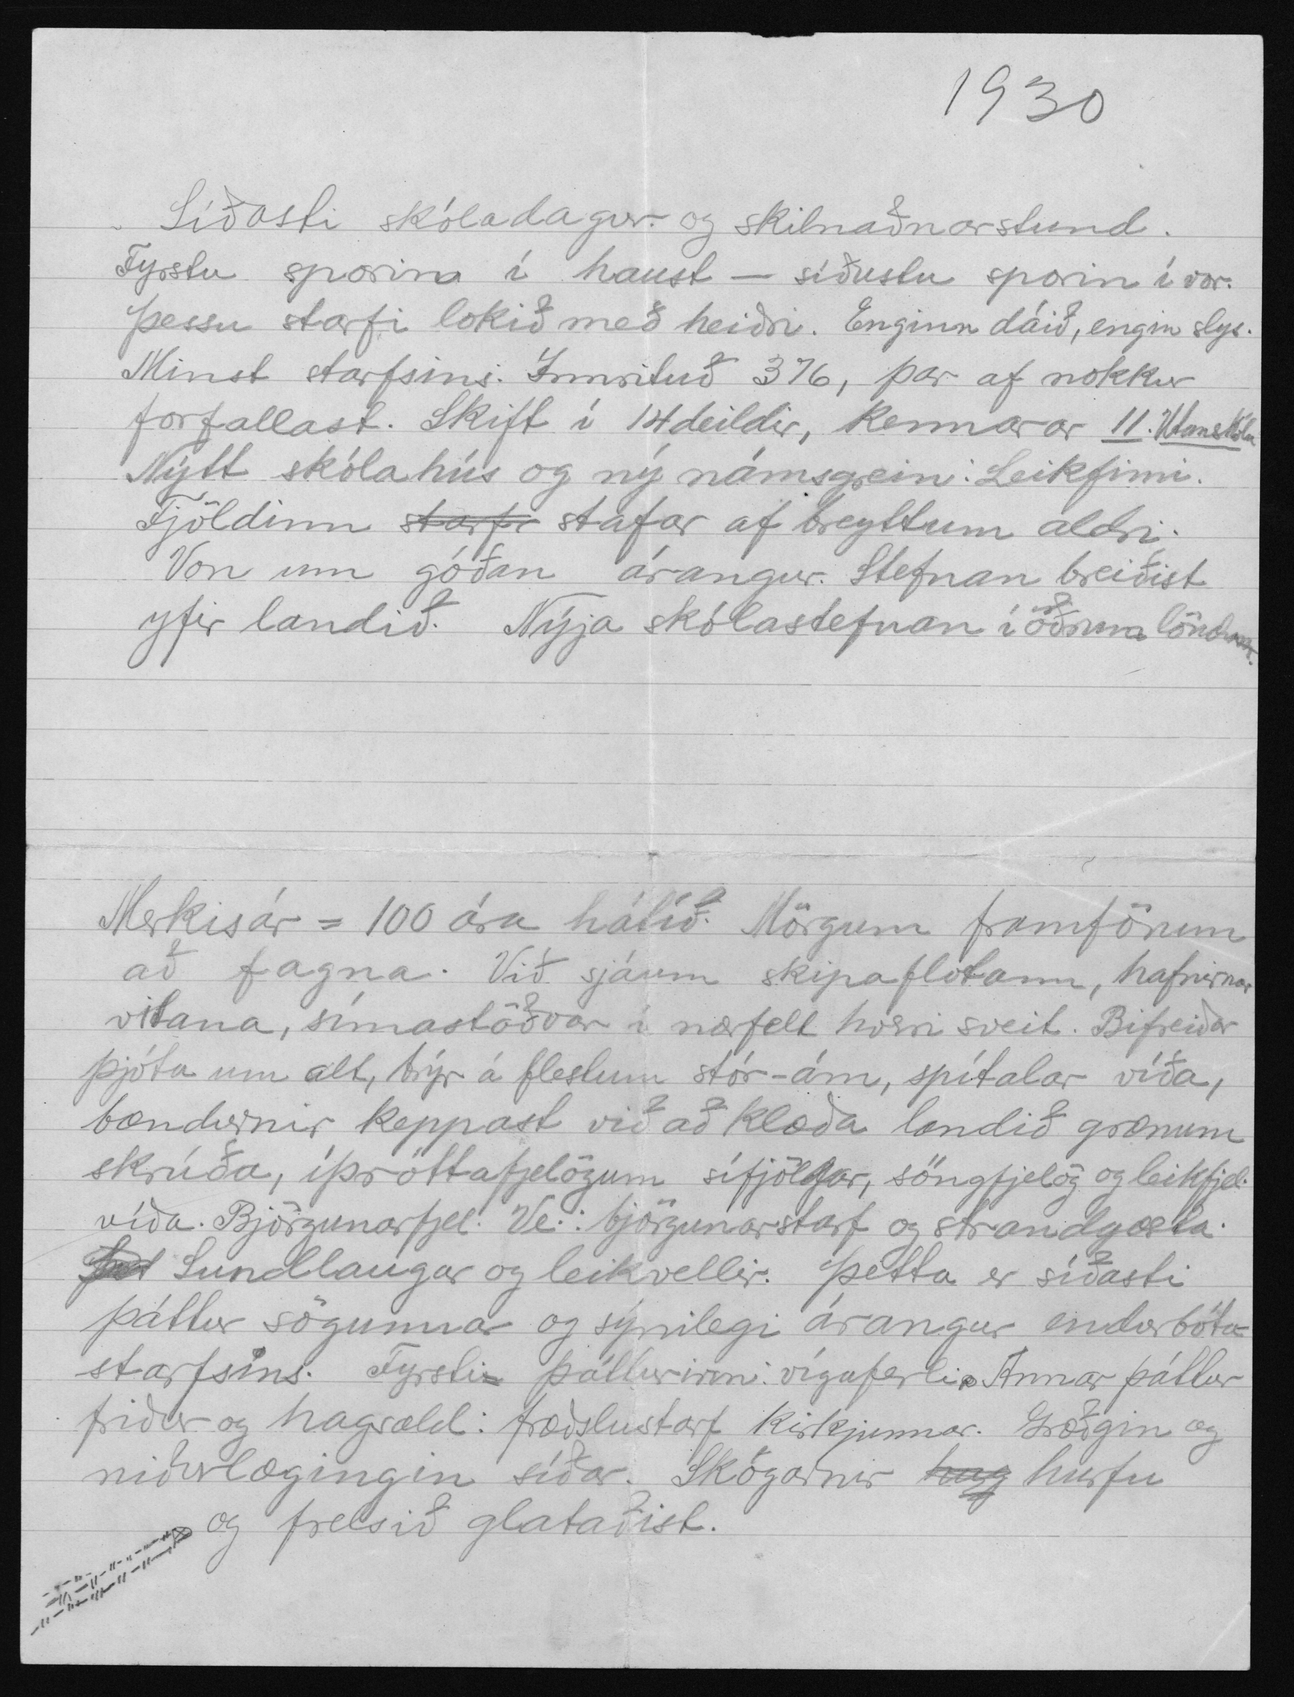 1930
Síðasti skóladagur og skilnaðnarstund.
Fyrstu sporin í haust – síðustu sporin í vor.
Þessu starfi lokið með heiðri. Enginn dáið, engin slys.
Minst starfsins. Innrituð 376, þar af nokkur
forfallast. Skift í 14 deildir, kennarar 11. Utanskóla
Nýtt skólahús og ný námsgrein: Leikfimi.
Fjöldinn starfi stafar af breyttum aldri.
Von um góðan árangur. Stefnan breiðist
yfir landið. Nýja skólastefnan í öðrum löndum.
Merkisár = 100 ára hátíð. Mörgum framförum
að fagna. Við sjáum skipaflotann, hafnirnar
vitana, símastöðvar í nærfelt hverri sveit. Bifreiðar
þjóta um alt, brýr á flestum stór-ám, spítalar víða,
bændurnir keppast við að klæða landið grænum
skrúða, íþróttafjelögum sífjölgar, söngfjelög og leikfjel.
víða. Björgunarfjel. Ve.: björgunarstarf og strandgæsla.
Þet Sundlaugar og leikvellir. Þetta er síðasti
þáttur sögunnar og sýnilegi árangur endurbóta
starfsins. Fyrsti þátturinn: vígaferli. Annar þáttur
friður og hagsæld: fræðslustarf kirkjunnar. Græðgin og
niðurlægingin síðar. Skógarnir hag hurfu
og frelsið glataðist.